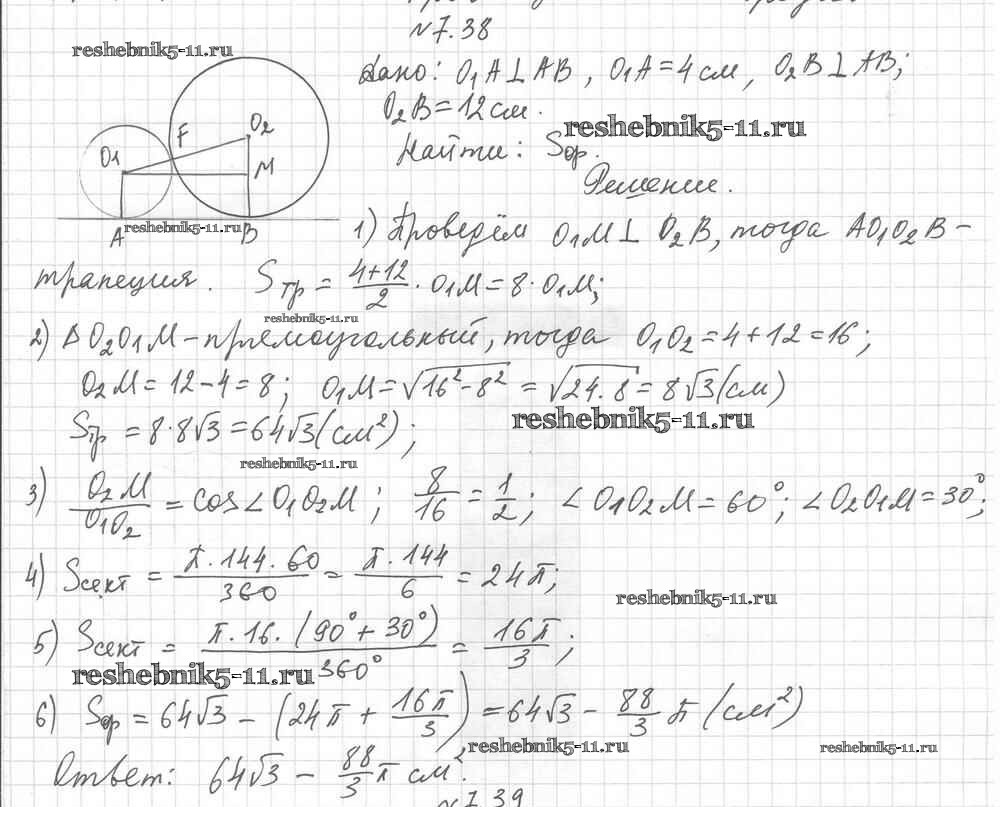 №7.38
reshebnik5-11.ru
Дано: O1A⊥AB, O1A=4см, O2B⊥AB;
O2B=12см.
reshebnik5-11.ru
Найти: Sфр.
Решение.
O1 F O2 M
A B
reshebnik5-11.ru
1) Проведём O1M⊥O2B, тогда AO1O2B –
трапеция. Sтр = (4+12)/2 · O1M = 8·O1M;
reshebnik5-11.ru
2) ΔO2O1M – прямоугольный, тогда O1O2=4+12=16;
O2M=12-4=8; O1M=√(16²-8²) = √(24·8) = 8√3(см)
reshebnik5-11.ru
Sтр = 8·8√3 = 64√3(см²);
reshebnik5-11.ru
3) O2M/O1O2 = cos∠O1O2M; 8/16 = 1/2; ∠O1O2M=60°; ∠O2O1M=30°;
4) Sсект = π·144·60/360 = π·144/6 = 24π;
reshebnik5-11.ru
5) Sсект = π·16·(90°+30°)/360° = 16π/3;
reshebnik5-11.ru
6) Sфр = 64√3 – (24π + 16π/3) = 64√3 – 88/3 π (см²)
reshebnik5-11.ru
reshebnik5-11.ru
Ответ: 64√3 – 88/3 π см².
№7.39